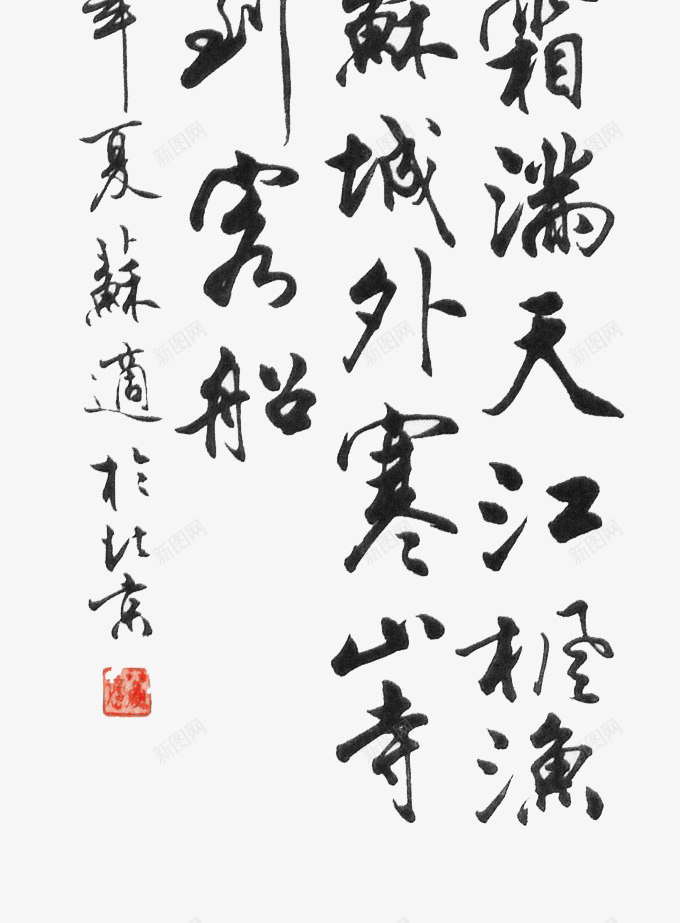 霜满天江枫渔
蘇城外寒山寺
到客船
年夏蘇適於北京
新图网